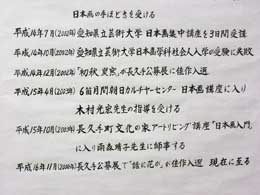 日本画の手ほどきを受ける
平成14年7月(2002年)愛知県立芸術大学 日本画集中講座を3日間受講
平成14年10月(2002年)愛知県立芸術大学日本画学科社会人入学の受験に失敗
平成14年12月(2002年)「初秋 裏窓」が長久手公募展に佳作入選
平成15年4月(2003年) 6ヶ月間朝日カルチャーセンター 日本画講座に入り
木村光宏先生の指導を受ける
平成15年10月(2003年)長久手町文化の家アートリビング講座「日本画入門」
に入り雨森靖子先生に師事する
平成16年11月(2004年)長久手公募展で「話に花が」が佳作入選 現在に至る